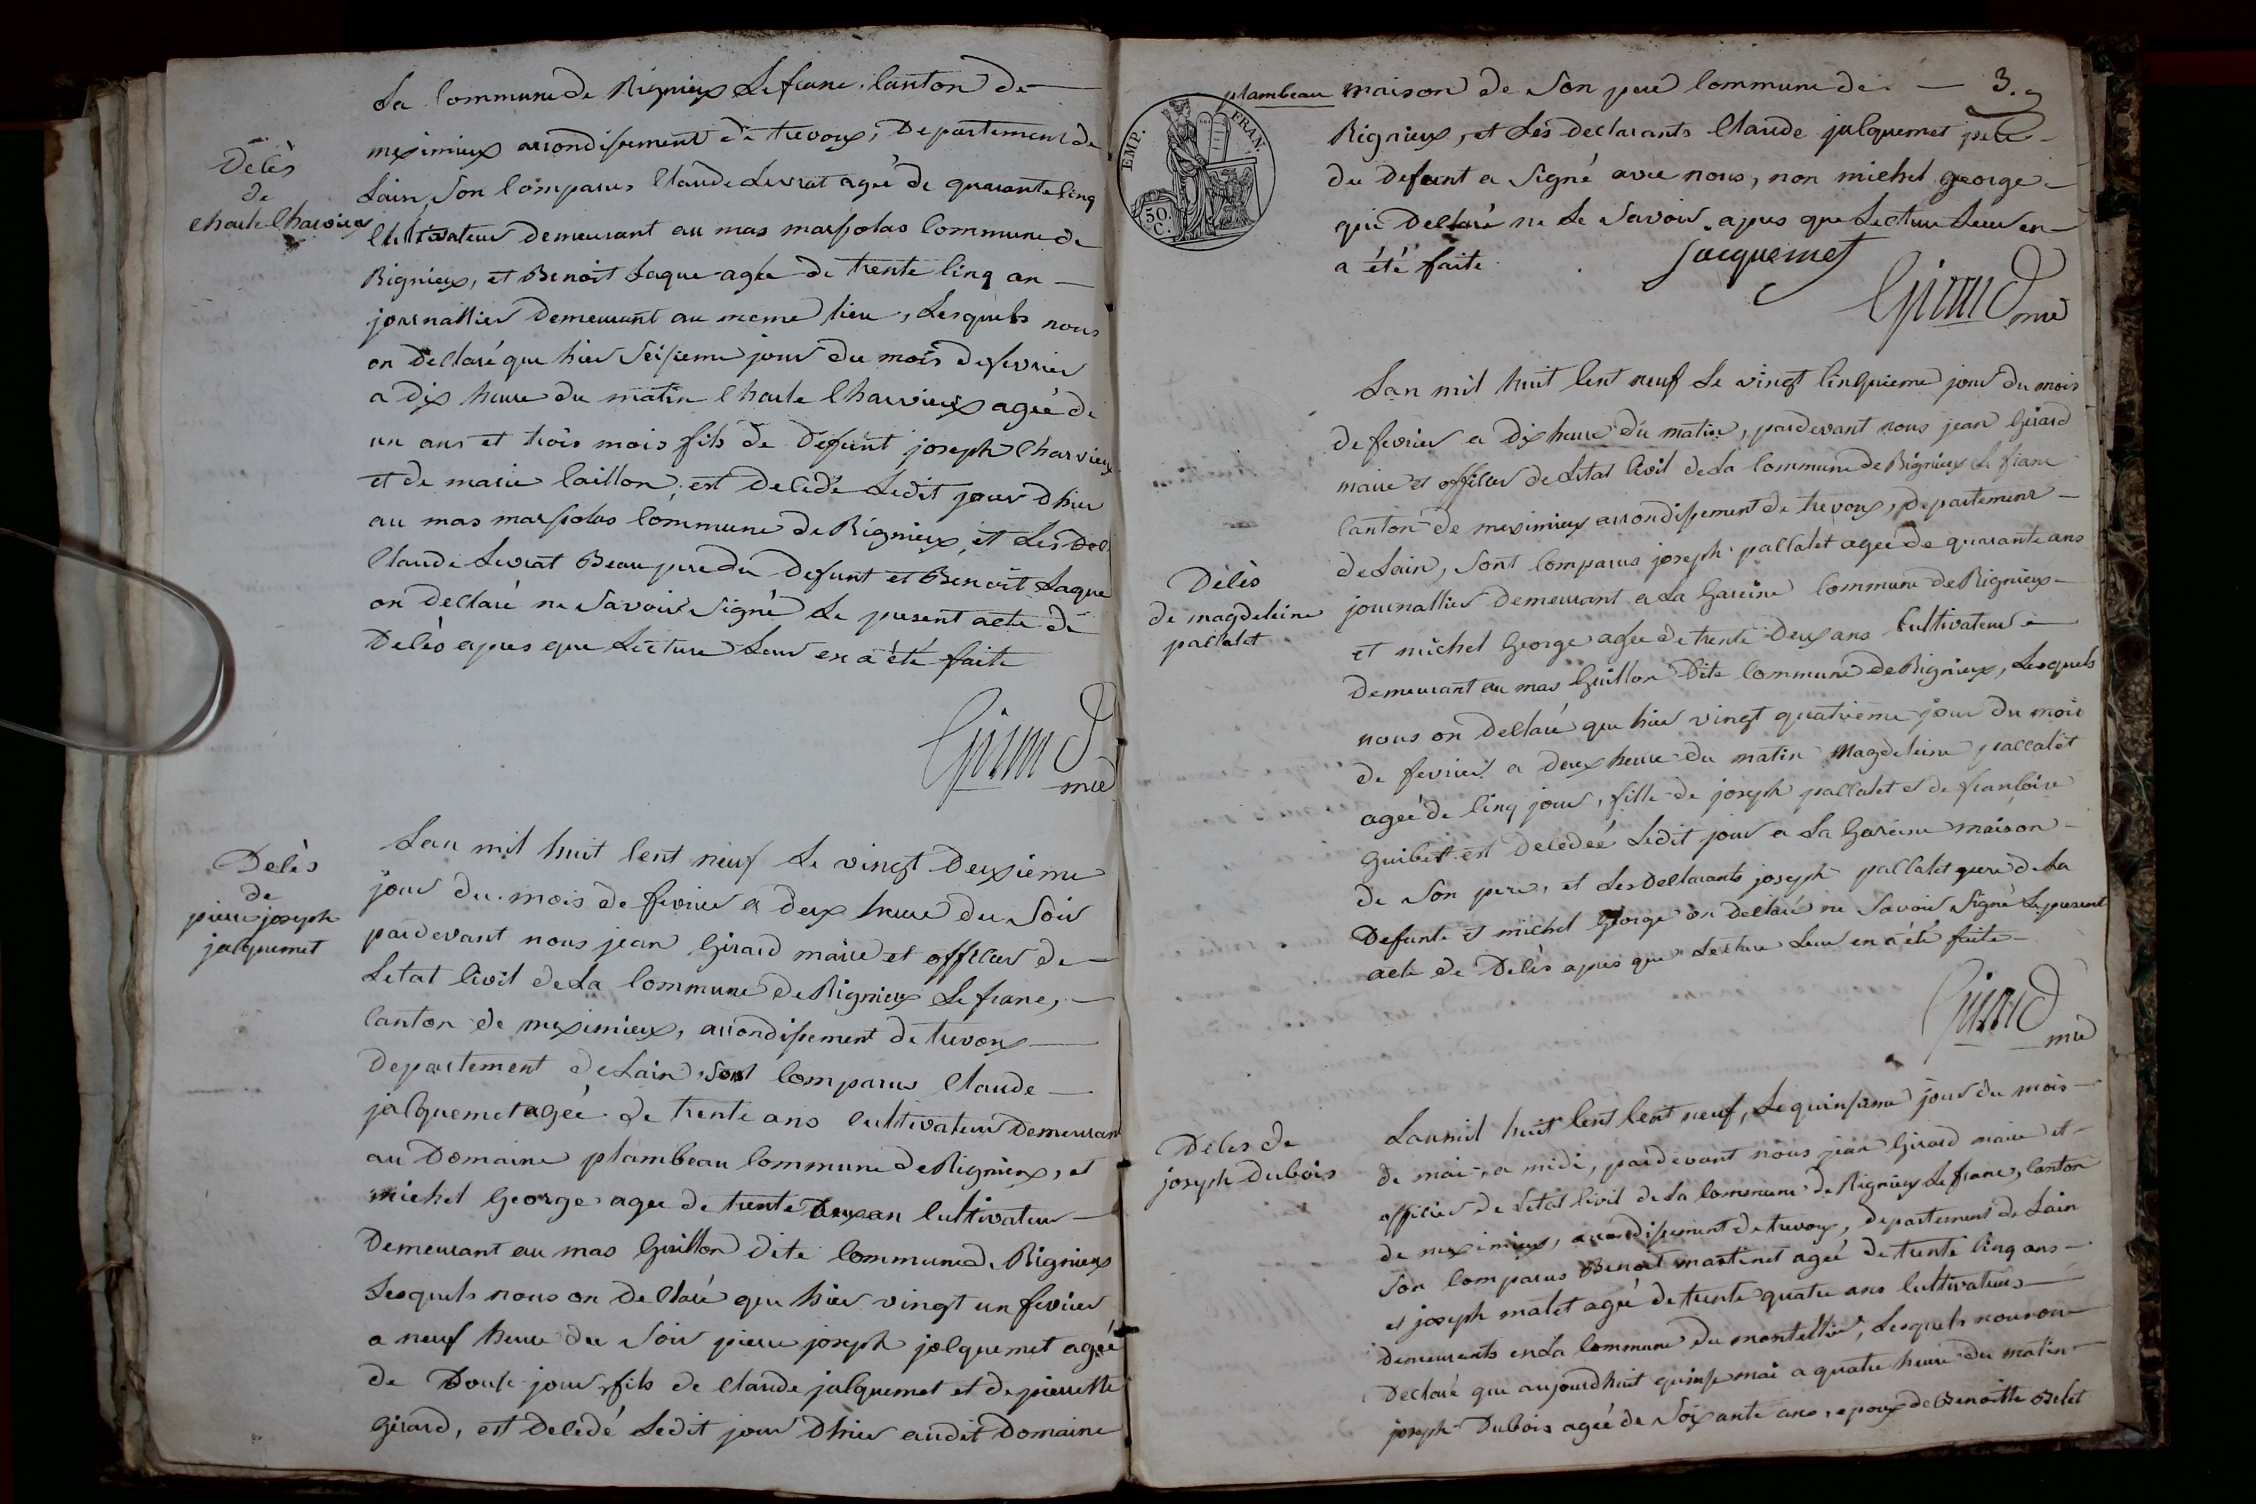 La Commune de Rignieux Le franc, Canton de
meximieux arrondissement de trevoux, Departement de
Décès
de
charle Charvieux
Lain, Son Comparus Claude Levrat agée de quarante Cinq
Cultivateur demeurant au mas marsolas Commune de
Rignieux, et Benoit Laque agée de trente Cinq an
journallier demeurant au meme lieu, Lesquels nous
on Declaré que hier Seisieme jour du mois de fevrier
a dix heure du matin Charle Charvieux ageé de
un ans et trois mois fils de defunt joseph Charvieux
et de marie Caillon, est Décédé Ledit jour d'hier
au mas marsolas Commune de Rignieux, et Les Dec
Claude Levrat Beau pere du defunt et Benoit Laque
on declaré ne Savoir Signé Le present acte de
Décès apres que Lecture Leur en a été faite
Girard
mre
Décès
de
pierre joseph
jacquemet
Lan mil huit Cent neuf Le vingt Deuxieme
jour du mois de fevrier a deux heure du Soir
pardevant nous jean Girard maire et officier de
Letat Civil de La Commune de Rignieux Le franc,
Canton de meximieux, arrondissement de trevoux
Departement de Lain, Sont Comparus Claude
jacquemet ageé de trente ans Cultivateur Demeurant
au Domaine plambeau Commune de Rignieux, et
michel George ageé de trente Deux an Cultivateur
Demeurant au mas Guillon dite Commune de Rignieux
Lesquels nous on Declaré que hier vingt un fevrier
a neuf heure du Soir pierre joseph jacquemet ageé
de Douse jour, fils de Claude jacquemet et de pierrette
Girard, est Décédé Ledit jour D'hier audit Domaine
EMP. FRAN.
50. C.
plambeau maison de Son pere Commune de 3.
Rignieux, et Les declarants Claude jacquemet pere
du defunt a Signé avec nous, non michel George
qui Declaré ne Le Savoir apres que Lecture Leur en
a été faite
jacquemet
Girard
mre
Décès
de magdeleine
pallatet
Lan mil huit Cent neuf Le vingt Cinquieme jour du mois
de fevrier a Dix heure du matin, pardevant nous jean Girard
maire et officier de Letat Civil de La Commune de Rignieux Le franc
Canton de meximieux arrondissement de trevoux, departement
de Lain, Sont Comparus joseph pallatet ageé de quarante ans
journallier Demeurant a La Gareine Commune de Rignieux
et michel George ageé de trente Deux ans Cultivateur
Demeurant au mas Guillon Dite Commune de Rignieux, Lesquels
nous on Declaré que hier vingt quatrieme jour du mois
de fevrier a deux heure du matin Magdeleine pallatet
ageé de Cinq jour, fille de joseph pallatet et de francoise
Guibet est Décédeé Ledit jour a La Gareine maison
de Son pere, et Les Declarants joseph pallatet pere de La
Defunte et michel George on Declaré ne Savoir Signé Le present
acte de Décès apres que Lecture Leur en a été faite
Girard
mre
Décès de
joseph Dubois
Lan mil huit Cent Cent neuf, Le quinsieme jour du mois
de mai, a midi, pardevant nous jean Girard maire et
officier de Letat Civil de La Commune de Rignieux Le franc, Canton
de meximieux, arrondissement de trevoux, departement de Lain
Son Comparus Benoit martinet ageé de trente Cinq ans
et joseph malet ageé de trente quatre ans Cultivateurs
Demeurants en La Commune du montellier, Lesquels nous on
Declaré que aujourdhuit quinse mai a quatre heure du matin
joseph Dubois ageé de Soixante ans, epoux de Benoitte